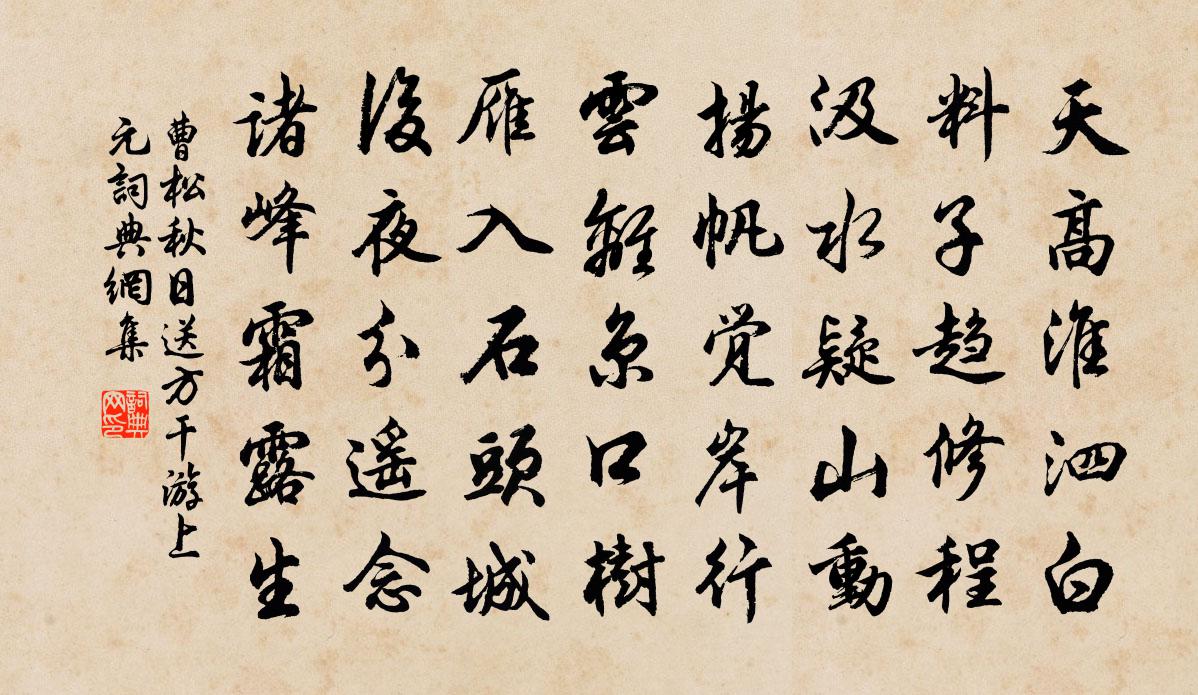 天高淮泗白
料子趋修程
汲水疑山動
揚帆觉岸行
雲離京口樹
雁入石頭城
後夜分遥念
諸峰霜露生
曹松秋日送方干游上
元詞典網集
詞典
网印